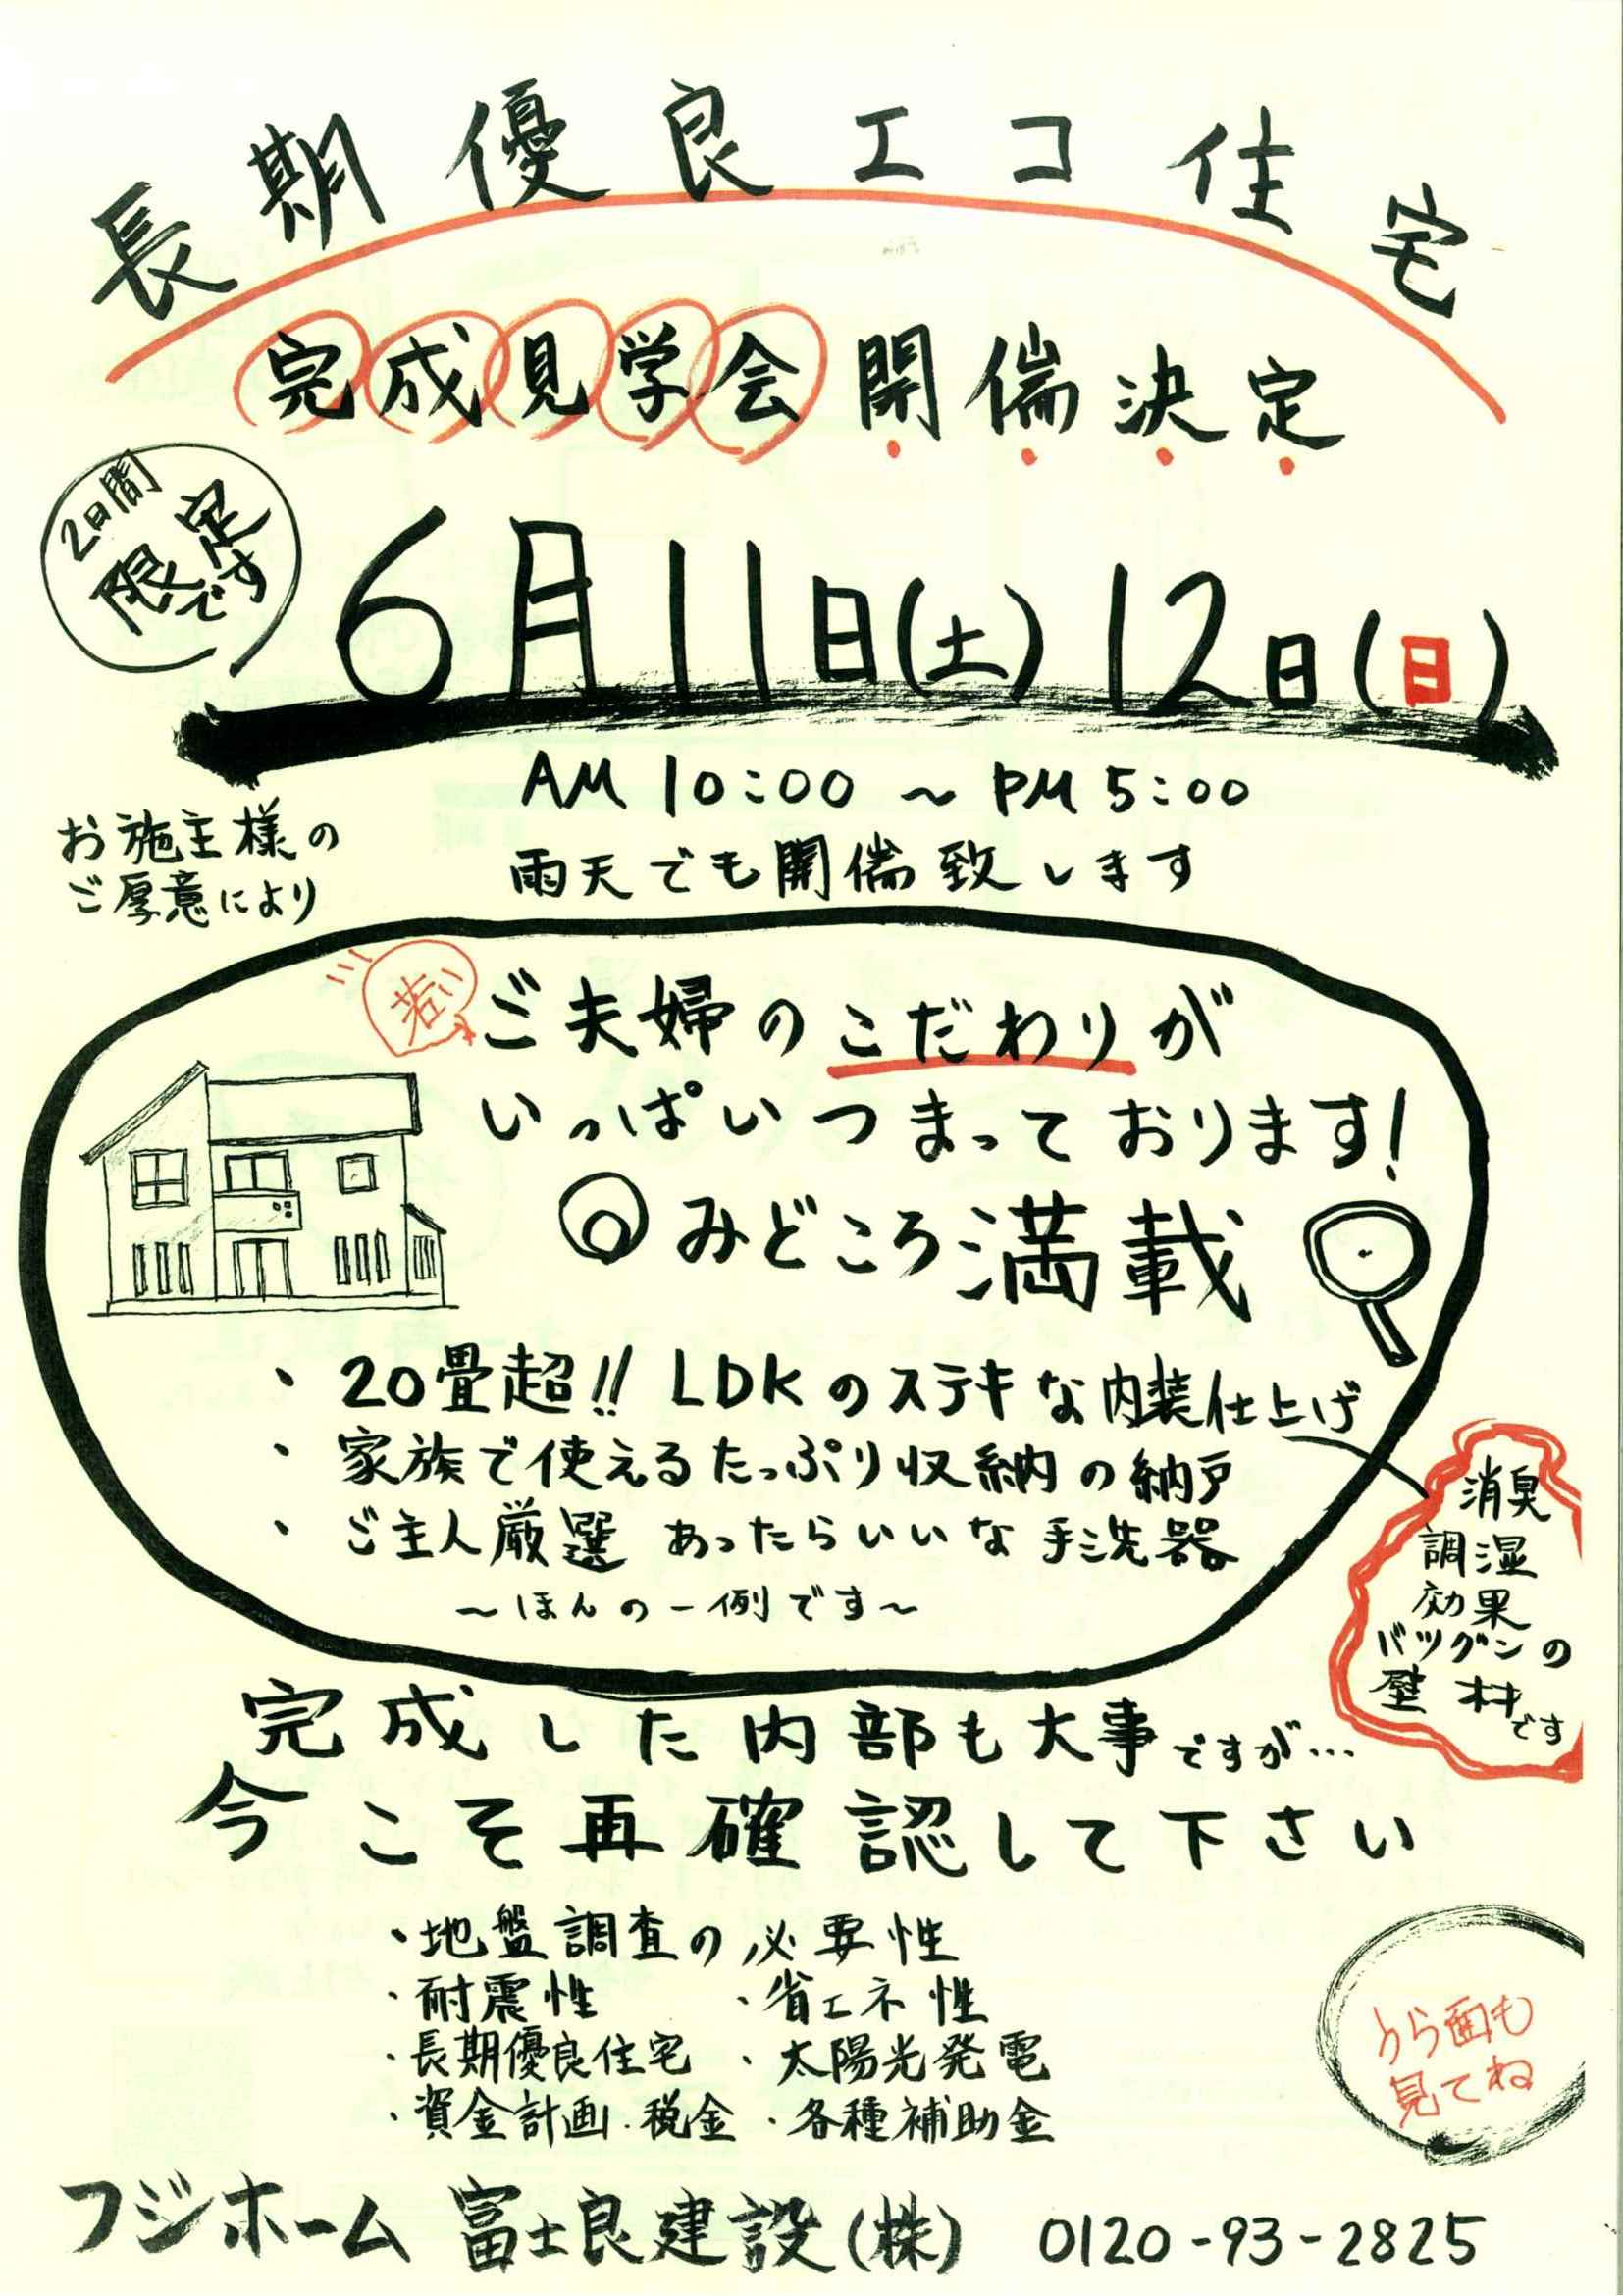 長期優良エコ住宅
完成見学会開催決定
2日間
限定
です
6月11日(土)12日(日)
AM 10:00 ~ PM 5:00
雨天でも開催致します
お施主様の
ご厚意により
若い
ご夫婦のこだわりが
いっぱいつまっております!
みどころ満載
・20畳超!! LDKのステキな内装仕上げ
・家族で使えるたっぷり収納の納戸
・ご主人厳選 あったらいいな 手洗器
~ほんの一例です~
消臭
調湿
効果
バツグンの
壁材です
完成した内部も大事ですが…
今こそ再確認して下さい
・地盤調査の必要性
・耐震性 ・省エネ性
・長期優良住宅 ・太陽光発電
・資金計画・税金 ・各種補助金
うら面も
見てね
フジホーム 富士良建設(株) 0120-93-2825